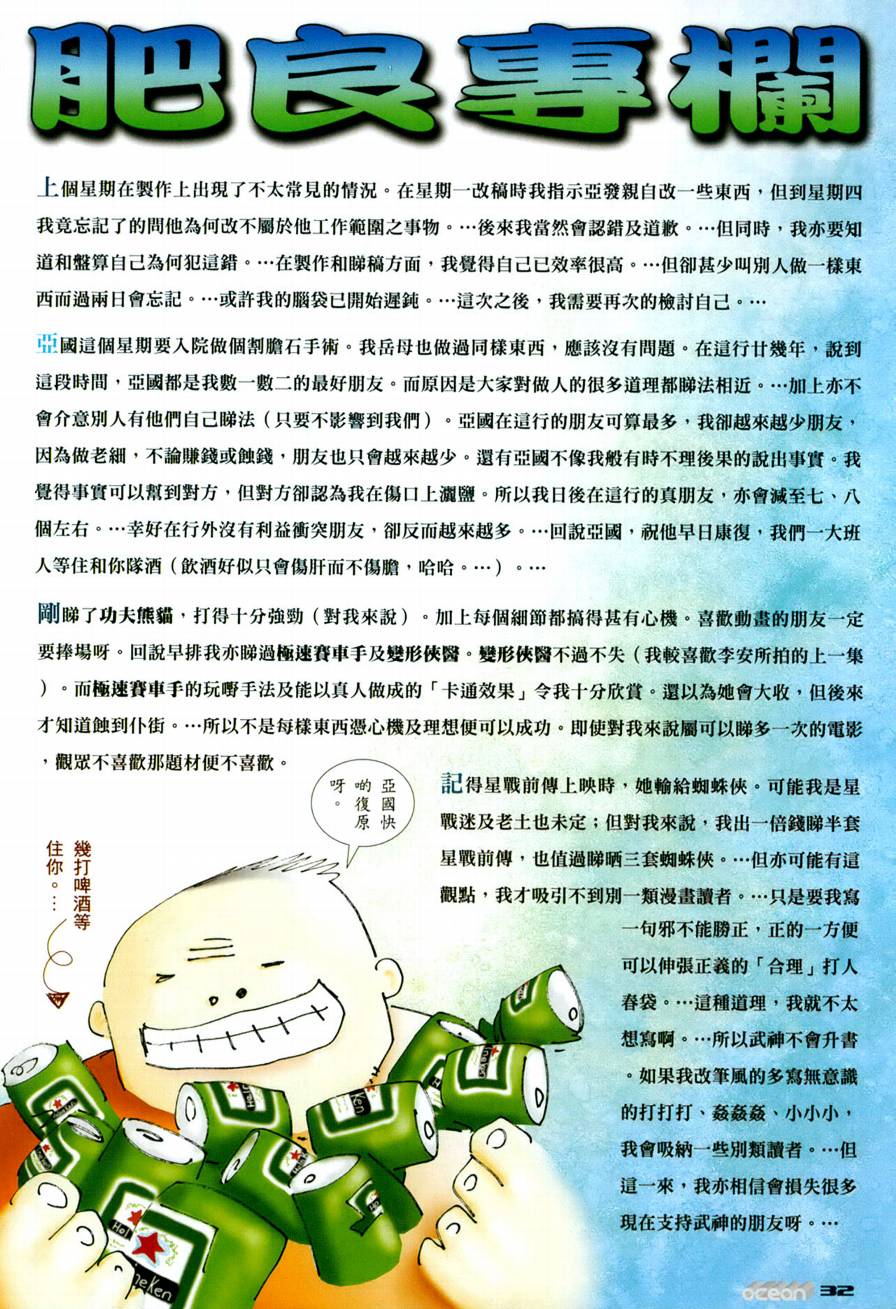 肥良專欄
上個星期在製作上出現了不太常見的情況。在星期一改稿時我指示亞發親自改一些東西，但到星期四
我竟忘記了的問他為何改不屬於他工作範圍之事物。…後來我當然會認錯及道歉。…但同時，我亦要知
道和盤算自己為何犯這錯。…在製作和睇稿方面，我覺得自己已效率很高。…但卻甚少叫別人做一樣東
西而過兩日會忘記。…或許我的腦袋已開始遲鈍。…這次之後，我需要再次的檢討自己。…
亞國這個星期要入院做個割膽石手術。我岳母也做過同樣東西，應該沒有問題。在這行廿幾年，說到
這段時間，亞國都是我數一數二的最好朋友。而原因是大家對做人的很多道理都睇法相近。…加上亦不
會介意別人有他們自己睇法（只要不影響到我們）。亞國在這行的朋友可算最多，我卻越來越少朋友，
因為做老細，不論賺錢或蝕錢，朋友也只會越來越少。還有亞國不像我般有時不理後果的說出事實。我
覺得事實可以幫到對方，但對方卻認為我在傷口上灑鹽。所以我日後在這行的真朋友，亦會減至七、八
個左右。…幸好在行外沒有利益衝突朋友，卻反而越來越多。…回說亞國，祝他早日康復，我們一大班
人等住和你隊酒（飲酒好似只會傷肝而不傷膽，哈哈。…）。…
剛睇了功夫熊貓，打得十分強勁（對我來說）。加上每個細節都搞得甚有心機。喜歡動畫的朋友一定
要捧場呀。回說早排我亦睇過極速賽車手及變形俠醫。變形俠醫不過不失（我較喜歡李安所拍的上一集
）。而極速賽車手的玩嘢手法及能以真人做成的「卡通效果」令我十分欣賞。還以為她會大收，但後來
才知道蝕到仆街。…所以不是每樣東西憑心機及理想便可以成功。即使對我來說屬可以睇多一次的電影
，觀眾不喜歡那題材便不喜歡。
記得星戰前傳上映時，她輸給蜘蛛俠。可能我是星
戰迷及老土也未定；但對我來說，我出一倍錢睇半套
星戰前傳，也值過睇晒三套蜘蛛俠。…但亦可能有這
觀點，我才吸引不到別一類漫畫讀者。…只是要我寫
一句邪不能勝正，正的一方便
可以伸張正義的「合理」打人
春袋。…這種道理，我就不太
想寫啊。…所以武神不會升書
。如果我改筆風的多寫無意識
的打打打、姦姦姦、小小小，
我會吸納一些別類讀者。…但
這一來，我亦相信會損失很多
現在支持武神的朋友呀。…
亞國快
啲復原
呀。
幾打啤酒等
住你。…
Heineken
ocean 32